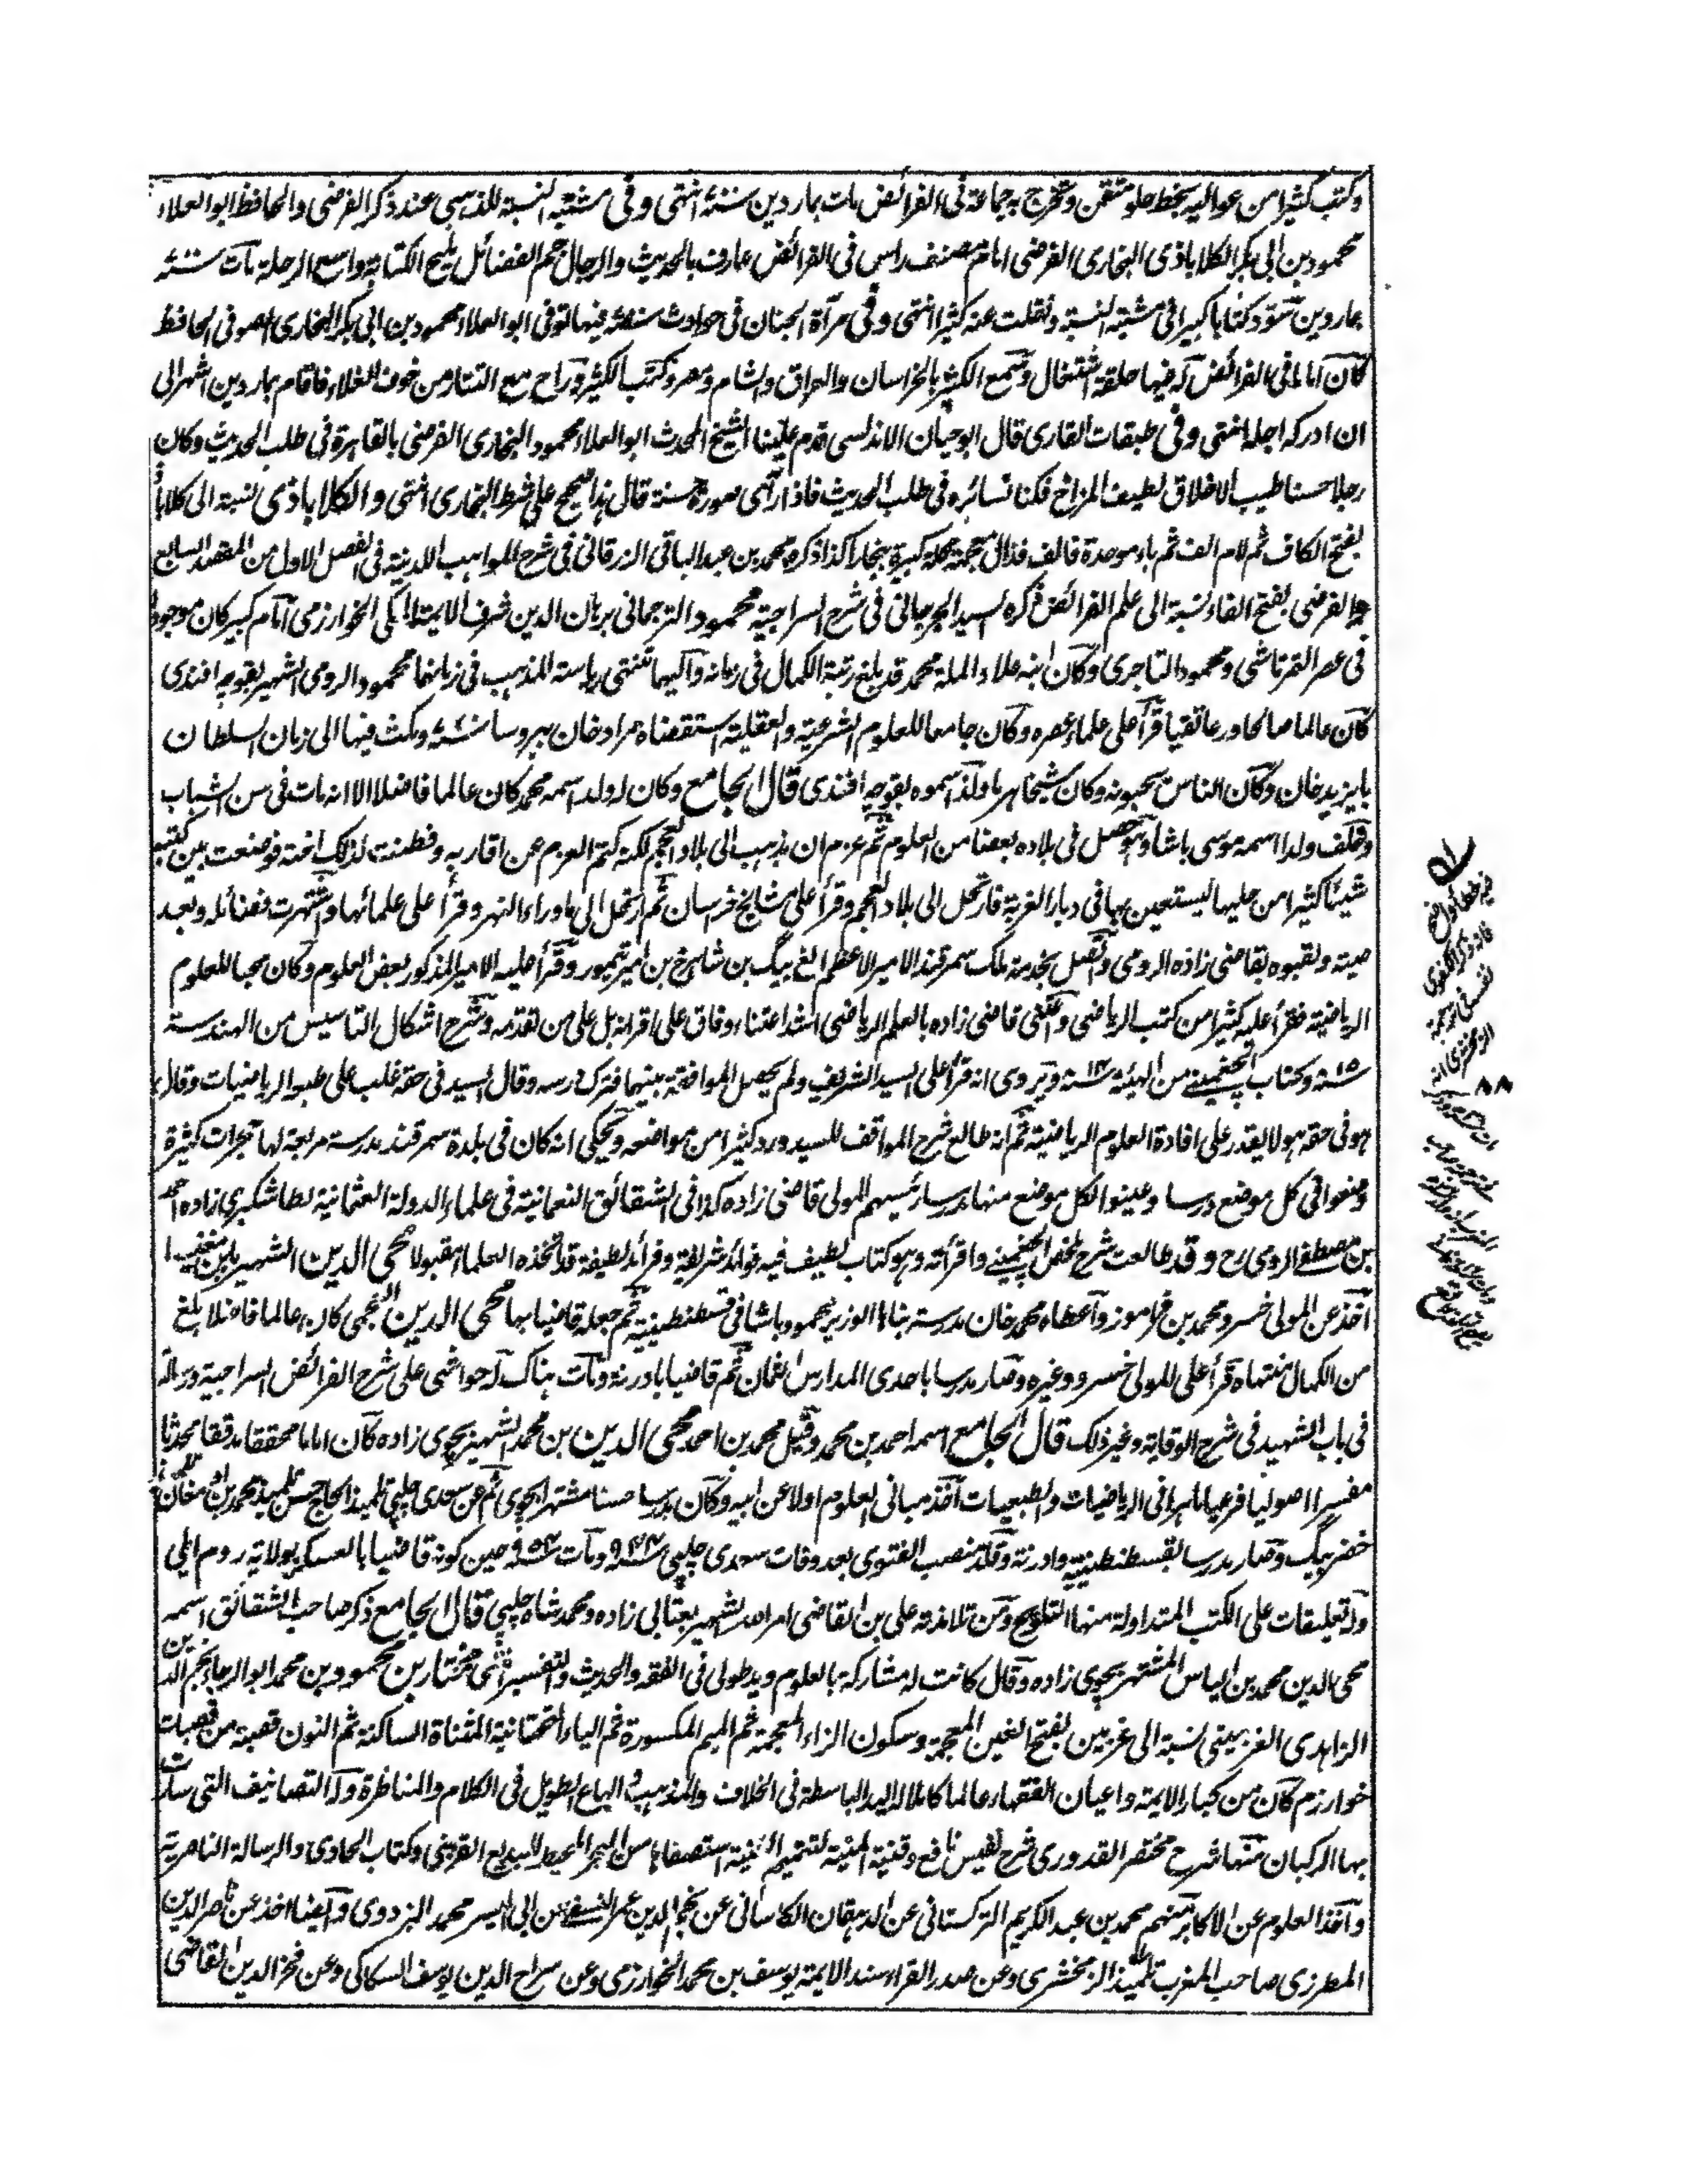 وكتب كثيرا من عواليه بخط حلو متقن وتخرج به جماعة فى الفرائض مات بماردين سنة انتهى وفى مشتبه النسبة للذهبى عند ذكر الفرضى والحافظ ابو العلاء
محمود بن ابى بكر الكلاباذى البخارى الفرضى امام مصنف راس فى الفرائض عارف بالحديث والرجال جم الفضائل مليح الكتابة واسع الرحلة مات سنة
بماردين سود كتابا كبيرا فى مشتبه النسبة ونقلت عنه كثيرا انتهى وفى مرآة الجنان فى حوادث سنة فيها توفى ابو العلاء محمود بن ابى بكر البخارى الصوفى الحافظ
كان اماما فى الفرائض له فيها حلقة اشتغال وسمع الكثير بالخراسان والعراق والشام ومصر وكتب الكثير وراح مع التتار من خوف الغلاء فاقام بماردين اشهرا الى
ان ادركه اجله انتهى وفى طبقات القارى قال ابو حيان الاندلسى قدم علينا الشيخ المحدث ابو العلاء محمود البخارى الفرضى بالقاهرة فى طلب الحديث وكان
رجلا حسنا طيب الاخلاق لطيف المزاج فكنا نسائره فى طلب الحديث فاذا رآى صورة حسنة قال هذا صحيح على شرط البخارى انتهى والكلاباذى نسبة الى كلاباذ
بفتح الكاف ثم لام الف ثم باء موحدة فالف فذال معجمة محلة كبيرة ببخارا كذا ذكره محمد بن عبد الباقى الزرقانى فى شرح المواهب اللدنية فى الفصل الاول من المقصد السابع
والفرضى بفتح الفاء نسبة الى علم الفرائض ذكره السيد الجرجانى فى شرح السراجية محمود الترجمانى برهان الدين شرف الايمة المكى الخوارزمى امام كبير كان موجودا
فى عصر التمرتاشى ومحمود التاجرى وكان ابنه علاء الملة محمد قد بلغ رتبة الكمال فى زمانه واليهما تنتهى رياسة المذهب فى زمانهما محمود الرومى الشهير بقوجه افندى
كان عالما صالحا ورعا تقيا قرأ على علماء عصره وكان جامعا للعلوم الشرعية والعقلية استقضاه مراد خان ببروسا سنة ومكث فيها الى زمان السلطان
بايزيد خان وكان الناس يحبونه وكان شيخا هرما ولذا سموه بقوجه افندى قال الجامع وكان له ولد اسمه محمد كان عالما فاضلا الا انه مات فى سن الشباب
وخلف ولدا اسمه موسى باشا وهو حصل فى بلاده بعضا من العلوم ثم عزم ان يذهب الى بلاد العجم لكنه كتم العزم عن اقاربه وفطنت لذلك اخته فوضعت بين كتبه
شيئا كثيرا من حليها ليستعين بها فى ديار الغربة فارتحل الى بلاد العجم وقرأ على مشايخ خراسان ثم ارتحل الى ماوراء النهر وقرأ على علمائها واشتهرت فضائله وبعد
صيته ولقبوه بقاضى زاده الرومى واتصل بخدمة ملك سمرقند الامير الاعظم الغ بيگ بن شاهرخ بن امير تيمور وقرأ عليه الامير المذكور بعض العلوم وكان محبا للعلوم
الرياضية فقرأ عليه كثيرا من كتب الرياضى واعتنى قاضى زاده بالعلم الرياضى اشد اعتناء وفاق على اقرانه بل على من تقدمه وشرح اشكال التاسيس من الهندسة
سنة وكتاب الچغمينى من الهيئة سنة ويروى انه قرأ على السيد الشريف ولم يحصل الموافقة بينهما فترك درسه وقال السيد فى حقه غلب على طبعه الرياضيات وقال
هو فى حقه هو لا يقدر على افادة العلوم الرياضية ثم انه طالع شرح المواقف للسيد ورد كثيرا من مواضعه ويحكى انه كان فى بلدة سمرقند مدرسة مربعة لها حجرات كثيرة
وضعوا فى كل موضع درسا وعينوا لكل موضع منها مدرسا رئيسهم المولى قاضى زاده كذا فى الشقائق النعمانية فى علماء الدولة العثمانية لطاشكبرى زاده احمد
بن مصطفى الرومى رح وقد طالعت شرح ملخص الچغمينى واقرأته وهو كتاب لطيف فيه فوائد شريفة وفرائد لطيفة قد اتخذه العلماء مقبولا محى الدين الشهير بابن مغنيسا
اخذ عن المولى خسرو محمد بن فراموز واعطاه محمد خان مدرسة بناها الوزير محمود باشا فى قسطنطينية ثم جعله قاضيا بها محى الدين العجمى كان عالما فاضلا بلغ
من الكمال منتهاه قرأ على المولى خسرو وغيره وصار مدرسا باحدى المدارس الثمان ثم قاضيا بادرنه ومات هناك له حواشى على شرح الفرائض السراجية ورسالة
فى باب الشهيد فى شرح الوقاية وغير ذلك قال الجامع اسمه احمد بن محمد وقيل محمد بن احمد محى الدين بن محمد الشهير بچوى زاده كان اماما محققا مدققا محدثا
مفسرا اصوليا فرعيا ماهرا فى الرياضيات والطبيعيات اخذ مبانى العلوم اولا عن ابيه وكان مدرسا حسنا مشتهرا بچوى ثم عن سعدى چلپى تلميذ الحاج حسن تلميذ محمد بن ارمغان تلميذ
خضر بيگ وصار مدرسا بقسطنطينية وادرنة وقلد منصب الفتوى بعد وفات سعدى چلپى سنة ومات سنة فى حين كونه قاضيا بالعسكر بولاية روم ايلى
وله تعليقات على الكتب المتداولة منها التلويح ومن تلامذته على بن القاضى امر الله الشهير بقنالى زاده ومحمد شاه چلپى قال الجامع ذكر صاحب الشقائق اسمه
محى الدين محمد بن الياس المشتهر بچوى زاده وقال كانت له مشاركة بالعلوم ويد طولى فى الفقه والحديث والتفسير انتهى مختار بن محمود بن محمد ابو الرجاء نجم الدين
الزاهدى الغزمينى نسبة الى غزمين بفتح الغين المعجمة وسكون الزاء المعجمة ثم الميم المكسورة ثم الياء التحتانية المثناة الساكنة ثم النون قصبة من قصبات
خوارزم كان من كبار الايمة واعيان الفقهاء عالما كاملا له اليد الباسطة فى الخلاف والمذهب والباع الطويل فى الكلام والمناظرة وله التصانيف التى سارت
بها الركبان منها شرح مختصر القدورى شرح نفيس نافع وقنية المنية لتتميم الغنية استصفاها من البحر المحيط للبديع القزبنى وكتاب الحاوى والرسالة الناصرية
واخذ العلوم عن الاكابر منهم محمد بن عبد الكريم التركستانى عن الدهقان الكاسانى عن نجم الدين عمر النسفى عن ابى اليسر محمد البزدوى وايضا اخذ عن ناصر الدين
المطرزى صاحب المغرب تلميذ الزمخشرى وعن صدر القراء سند الايمة يوسف بن محمد الخوارزمى وعن سراج الدين يوسف السكاكى وعن فخر الدين القاضى